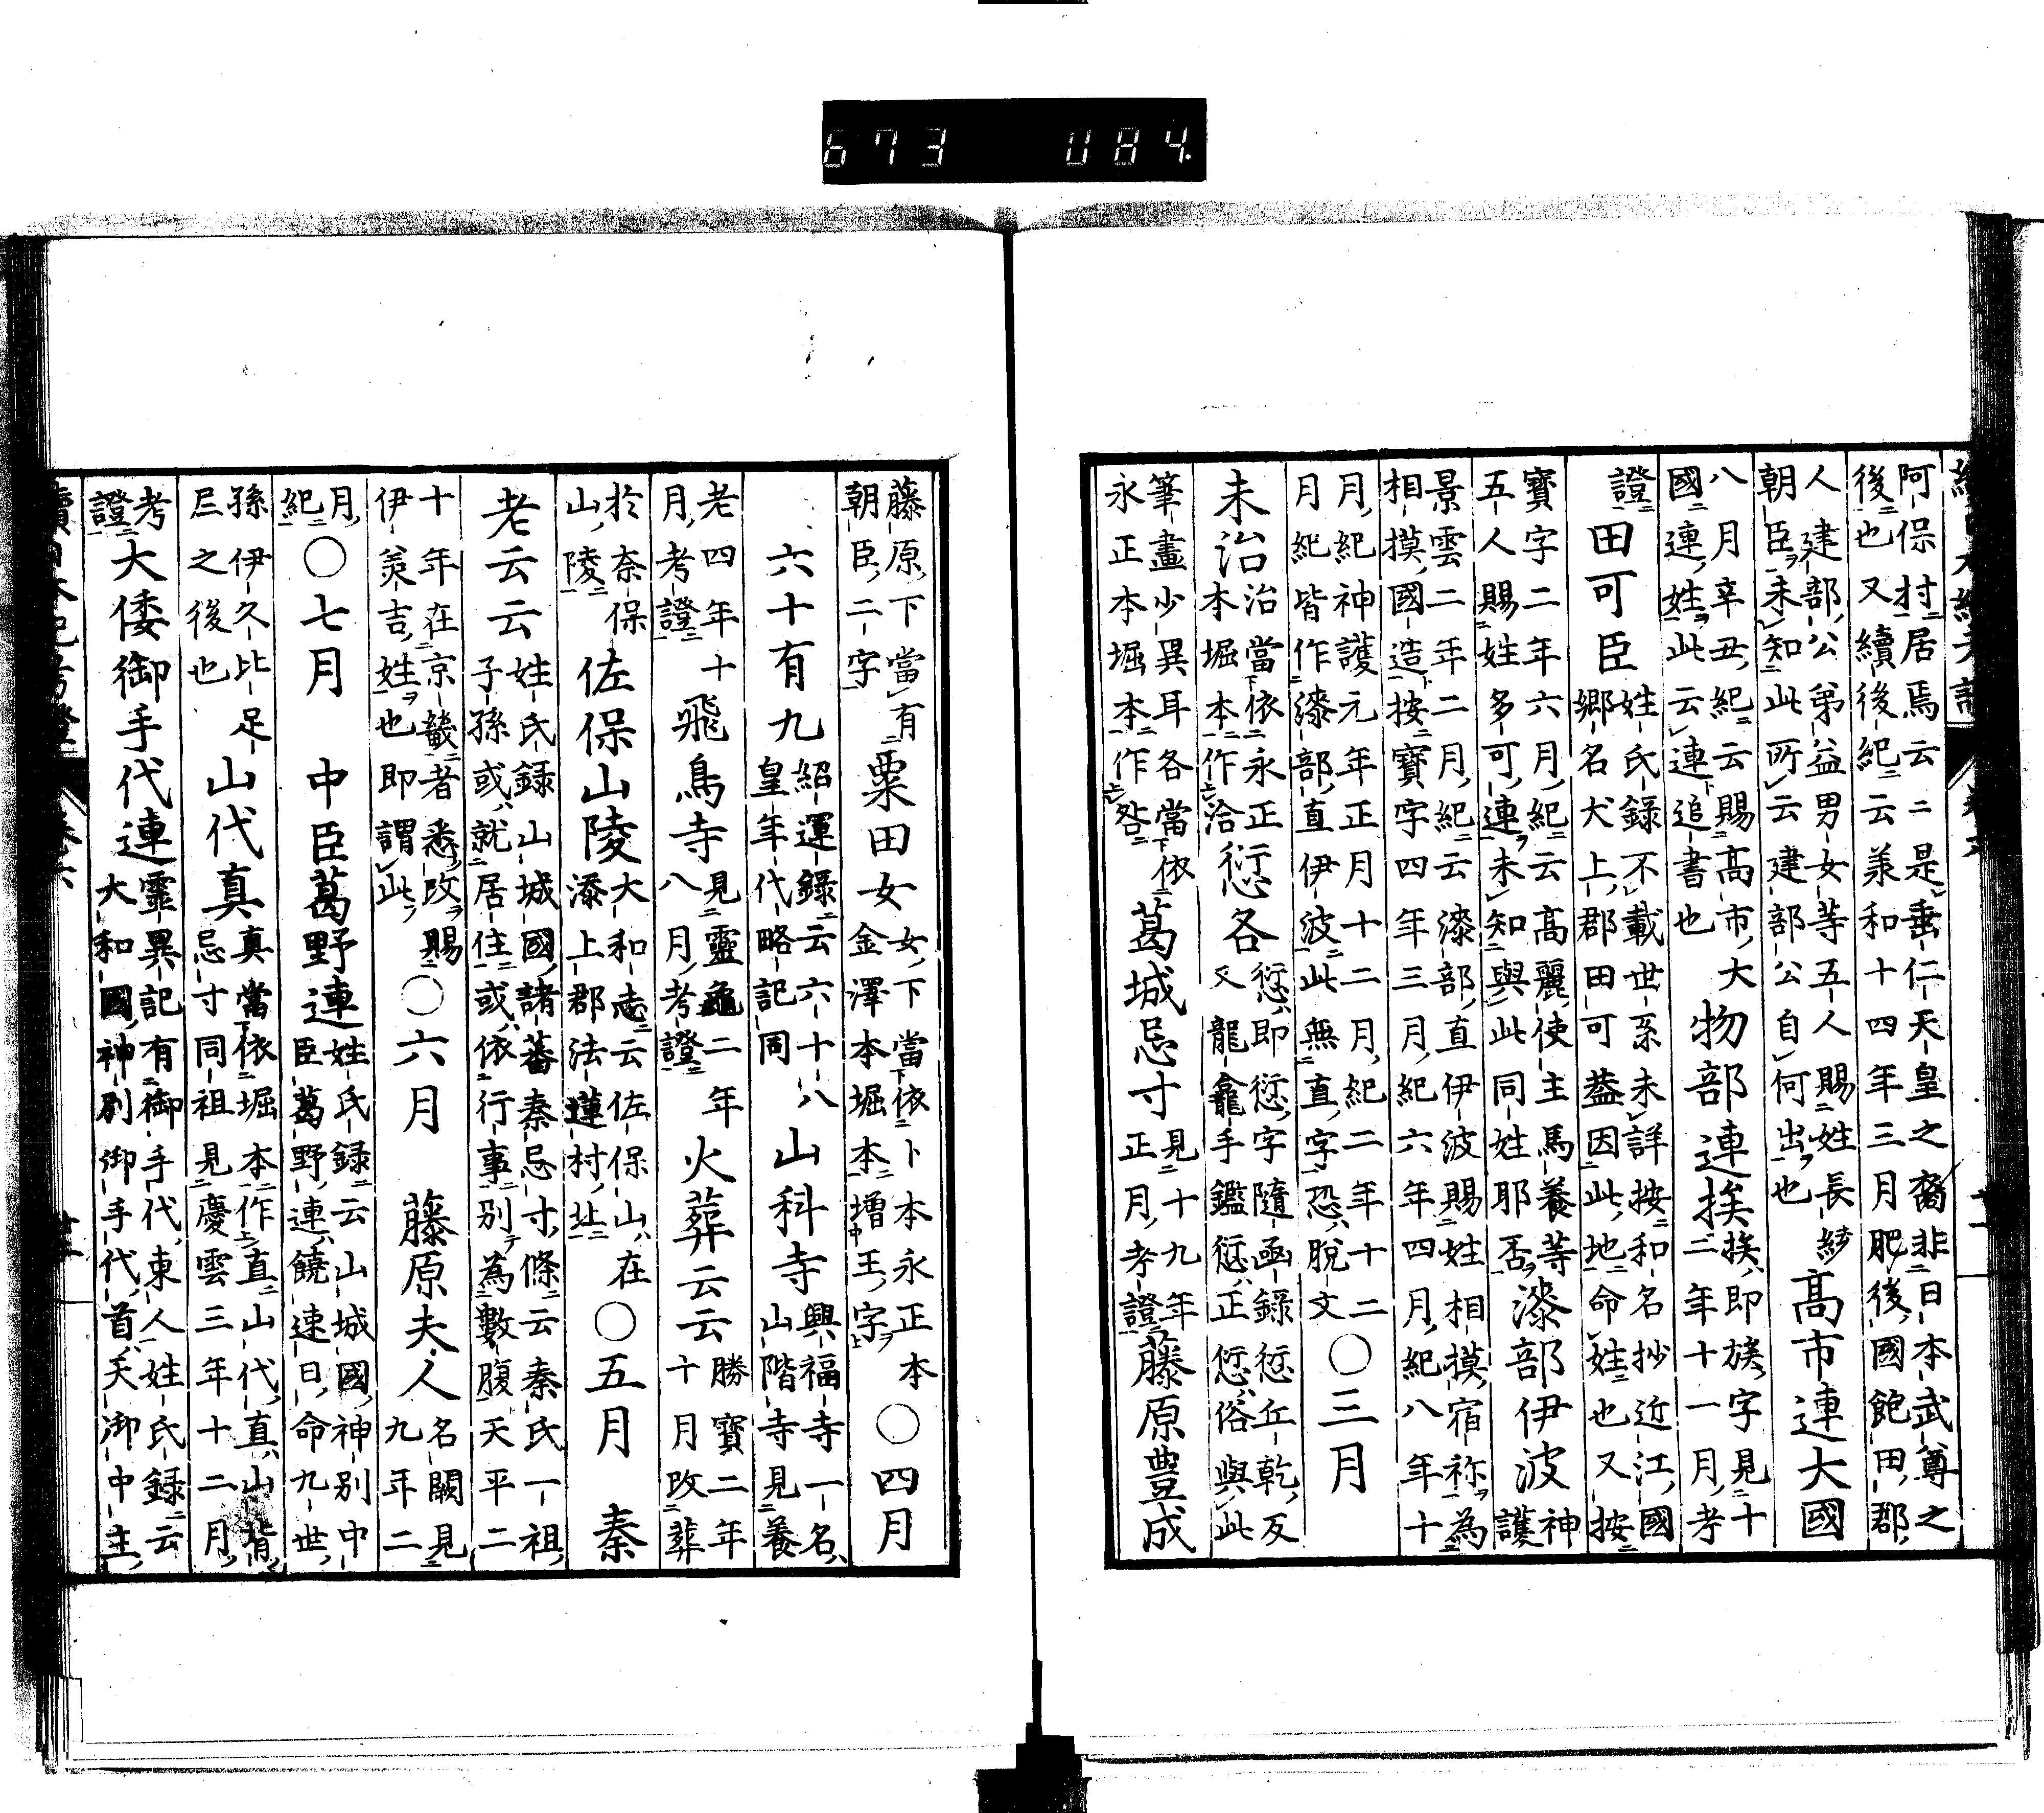 673 084.
阿保村居焉云云是垂仁天皇之裔非日本武尊之
後也又續後紀云美和十四年三月肥後國飽田郡
人建部公弟益男女等五人賜姓長統
朝臣未知此所云建部公自何出也
高市連大國
八月辛丑紀云賜高市大
國連姓此云連追書也
物部連挨
挨即族字見十
二年十一月考
證
田可臣
姓氏錄不載世系未詳按和名抄近江國
鄉名犬上郡田可蓋因此地命姓也又按
寶字二年六月紀云高麗使主馬養等
五人賜姓多可連未知與此同姓耶否
漆部伊波
神護
景雲二年二月紀云漆部直伊波賜姓相摸宿祢為
相摸國造按寶字四年三月紀六年四月紀八年十
月紀神護元年正月十二月紀二年十二
月紀皆作漆部直伊波此無直字恐脫文
○三月
未治
治當依永正
本堀本作洽
愆各
愆即愆字隨函錄愆丘乾反
又龍龕手鑑愆正愆俗與此
筆畫少異耳各當依
永正本堀本作咎
葛城忌寸
見十九年
正月考證
藤原豊成
藤原下當有
朝臣二字
粟田女
女下當依卜本永正本
金澤本堀本增王字
○四月
六十有九
紹運錄云六十八
皇年代略記同
山科寺
興福寺一名
山階寺見養
老四年十
月考證
飛鳥寺
見靈龜二年
八月考證
火葬云云
勝寶二年
十月改葬
於奈保
山陵
佐保山陵
大和志云佐保山在
添上郡法蓮村北
○五月
秦
老云云
姓氏錄山城國諸蕃秦忌寸條云秦氏一祖
子孫或就居住或依行事別為數腹天平二
十年在京畿者悉改賜
伊美吉姓也即謂此
○六月
藤原夫人
名闕見
九年二
月
紀
○七月
中臣葛野連
姓氏錄云山城國神別中
臣葛野連饒速日命九世
孫伊久比足
尼之後也
山代真
真當依堀本作直山代直山背
忌寸同祖見慶雲三年十二月
考
證
大倭御手代連
靈異記有御手代東人姓氏錄云
大和國神別御手代首天御中主